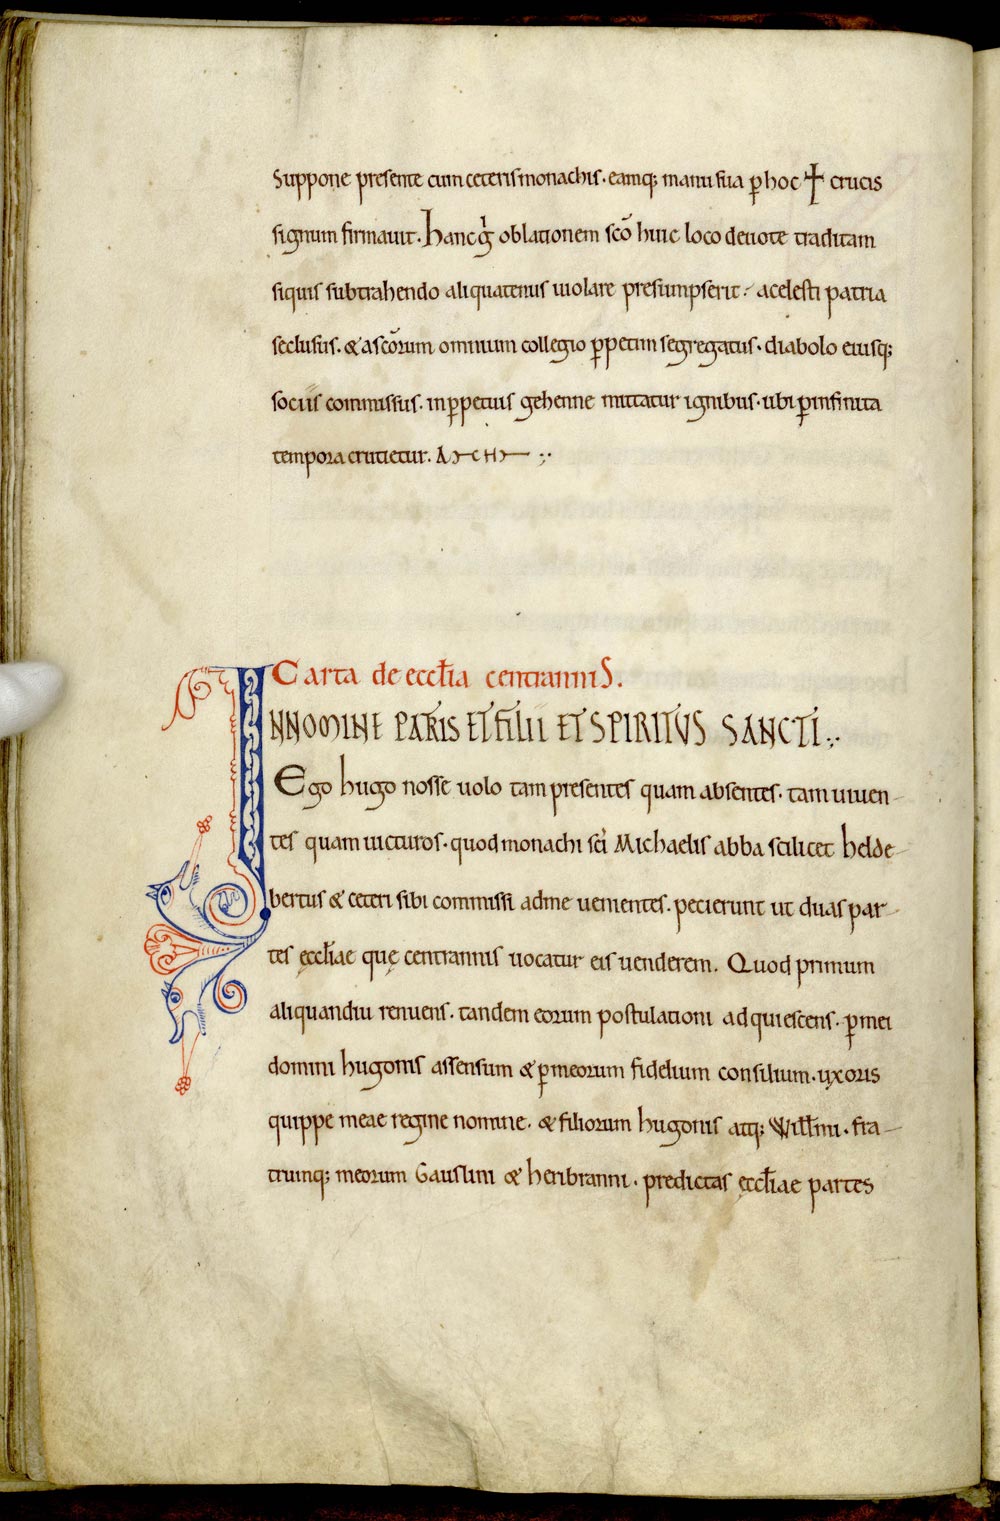 Suppone presente cum ceteris monachis. eamq; manu sua ꝑ hoc ✝ crucis
signum firmauit. Hanc gͥ oblationem sc̄o huic loco deuote traditam
siquis subtrahendo aliquatenus uiolare presumpserit. acelesti patria
seclusus. & asc̄orum omnium collegio ꝑpetim segregatus. diabolo eiusq;
sociis commissus. inꝑpetuis gehenne mittatur ignibus. ubi ꝑ infinita
tempora crucietur.
Carta de eccl̄ia centranniS.
INNOMINE PATRIS ET FILII ET SPIRITVS SANCTI
Ego hugo nosse uolo tam presentes quam absentes. tam uiuen-
tes quam uicturos. quod monachi sc̄i Michaelis abba scilicet helde-
bertus & ceteri sibi commissi adme uenientes. pecierunt ut duas par-
tes ęccl̄iae quę centrannis uocatur eis uenderem. Quod primum
aliquandiu renuens. tandem eorum postulationi adquiescens. ꝑ mei
domini hugonis assensum & ꝑ meorum fidelium consilium. uxoris
quippe meae regine nomine. & filiorum hugonis atq; Willl̄mi. fra-
trumq; meorum Gauslini & heribranni. predictas ęccl̄iae partes